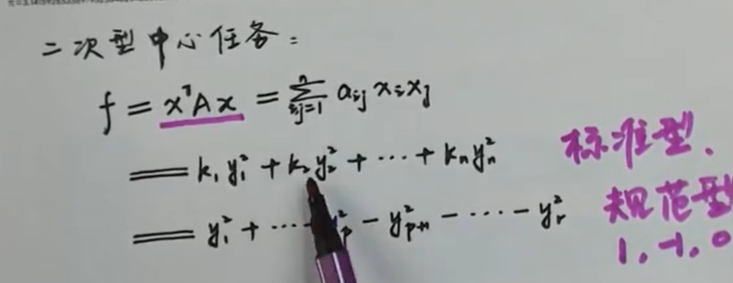 二次型中心任务：
f = xᵀAx = ∑ⁿᵢⱼ₌₁ aᵢⱼ xᵢxⱼ
= k₁y₁² + k₂y₂² + ⋯ + kₙyₙ²
标准型.
= y₁² + ⋯ yₚ² - yₚ₊₁² - ⋯ - yᵣ²
规范型
1, -1, 0